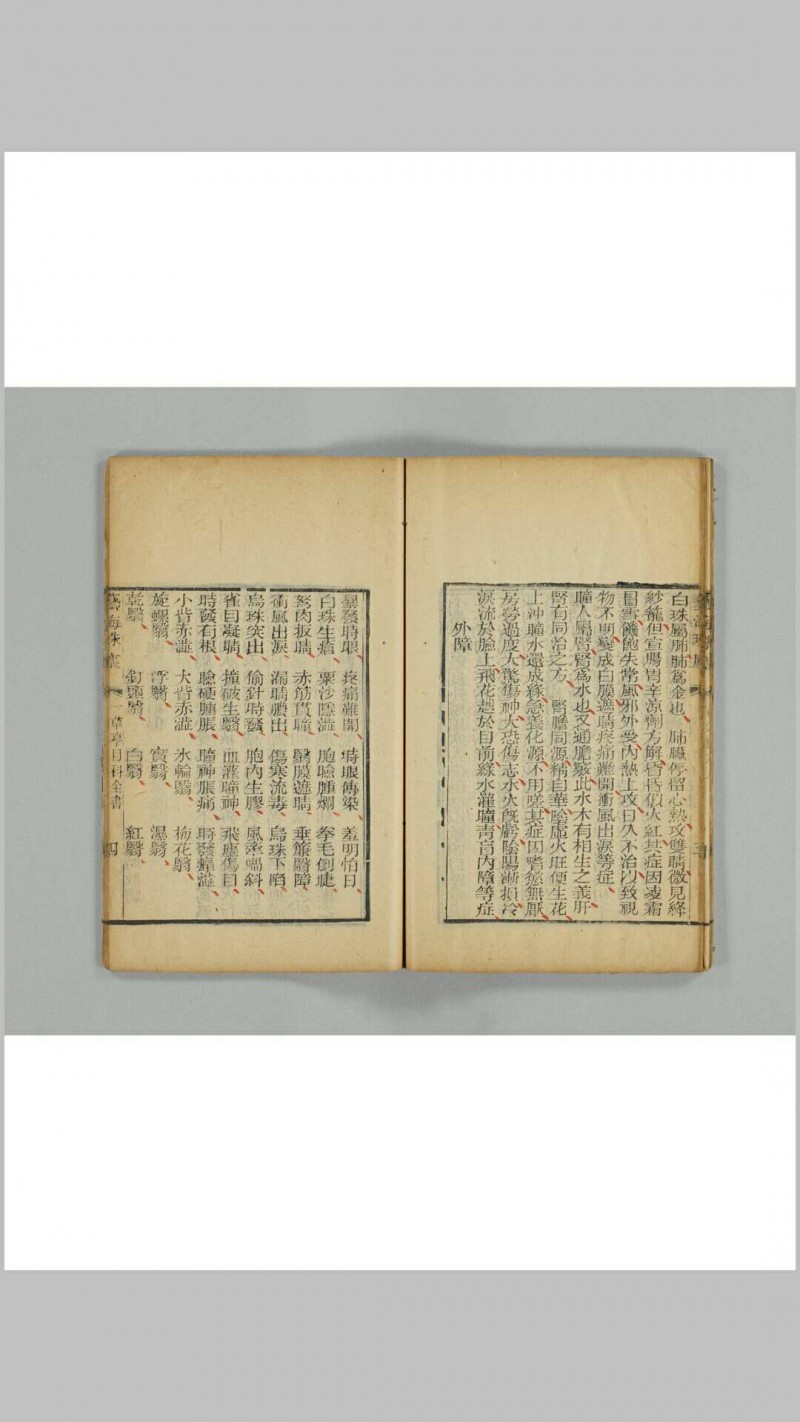 白珠屬肺肺爲金也、肺臟停留心熱攻雙睛微見絳
紗籠但宣腸胃辛涼劑方解昏昏似火紅其症因凌霜
冒雪饑飽失常風邪外受內熱上攻日久不治以致視
物不明變成白膜遮睛疼痛難開衝風出淚等症、
瞳人屬腎腎爲水也又通膽竅此水木有相生之義肝
腎有同治之方、腎膽同源精自華陰虛火旺便生花
上沖瞳水還成綠急養化源不用嗟其症因嗜慾無厭
房勞過度大驚傷神大恐傷志水火既虧陰陽漸損冷
淚流於臉上飛花越於目前綠水灌瞳青盲內障等症、
外障
暴發時眼、疼痛難開、時眼傳染、羞明怕日、
白珠生瘡、粟沙隱澁、胞瞼腫爛、拳毛倒睫、
胬肉扳睛、赤筋貫瞳、翳膜遮睛、垂簾翳障、
衝風出淚、漏睛膿出、傷寒流毒、烏珠下陷、
烏珠突出、偷針時發、胞內生膠、風牽喎斜、
雀目凝睛、撞破生翳、血灌瞳神、飛塵傷目、
時發有根、瞼硬腫脹、瞳神脹痛、時發癢澁、
小眥赤澁、大眥赤澁、氷輪翳、梅花翳、
旋螺翳、浮翳、實翳、濕翳、
乾翳、釘頭翳、白翳、紅翳、
藝海珠塵 一草亭目科全書 四